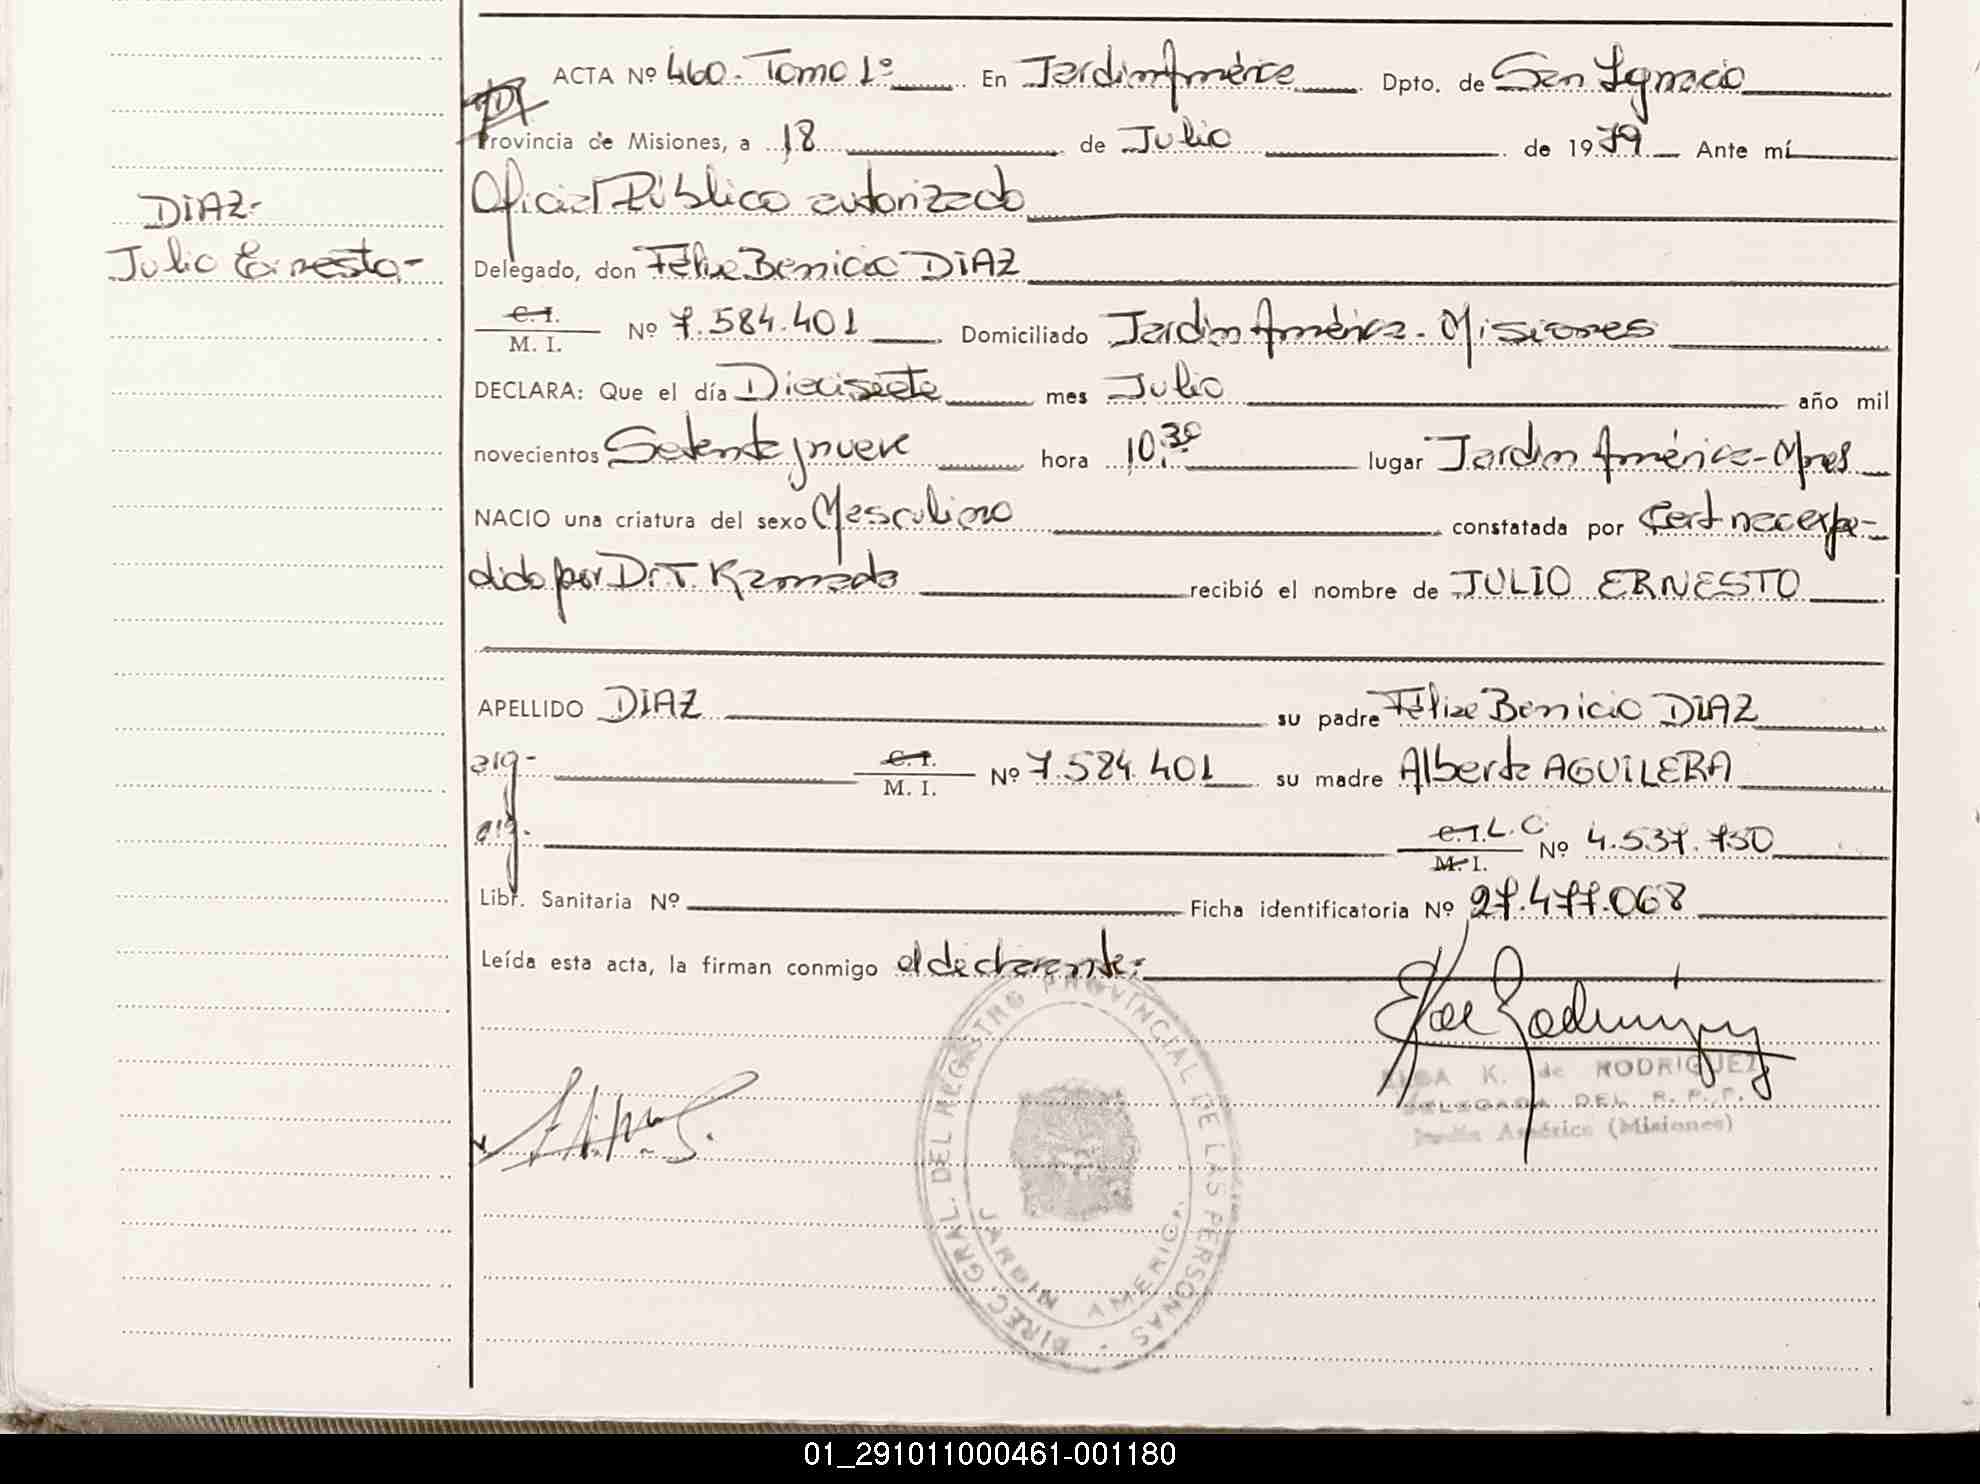 ACTA Nº 460 - Tomo 1º En Jardín América Dpto. de San Ignacio
Provincia de Misiones, a 18 de Julio de 1979 Ante mí
Oficial Público autorizado
DIAZ-
Julio Ernesto.-
Delegado, don Félix Benicio DIAZ
C.I.
M. I. Nº 7.584.401 Domiciliado Jardín América - Misiones
DECLARA: Que el día Diecisiete mes Julio año mil
novecientos Setenta y nueve hora 10,30 lugar Jardín América - Mnes
NACIO una criatura del sexo Masculino constatada por Cert nac expe-
dido por Dr. T. Kamada recibió el nombre de JULIO ERNESTO
APELLIDO DIAZ su padre Félix Benicio DIAZ
arg- C.I.
M. I. Nº 7.584.401 su madre Alberta AGUILERA
arg- C.I. L.C.
M. I. Nº 4.537.750
Libr. Sanitaria Nº Ficha identificatoria Nº 27.477.068
Leída esta acta, la firman conmigo el declarante:
DIREC. GRAL. DEL REGISTRO PROVINCIAL DE LAS PERSONAS
JARDIN AMERICA
K. de RODRIGUEZ
DELEGADA DEL R. P. P.
Jardín América (Misiones)
01_291011000461-001180